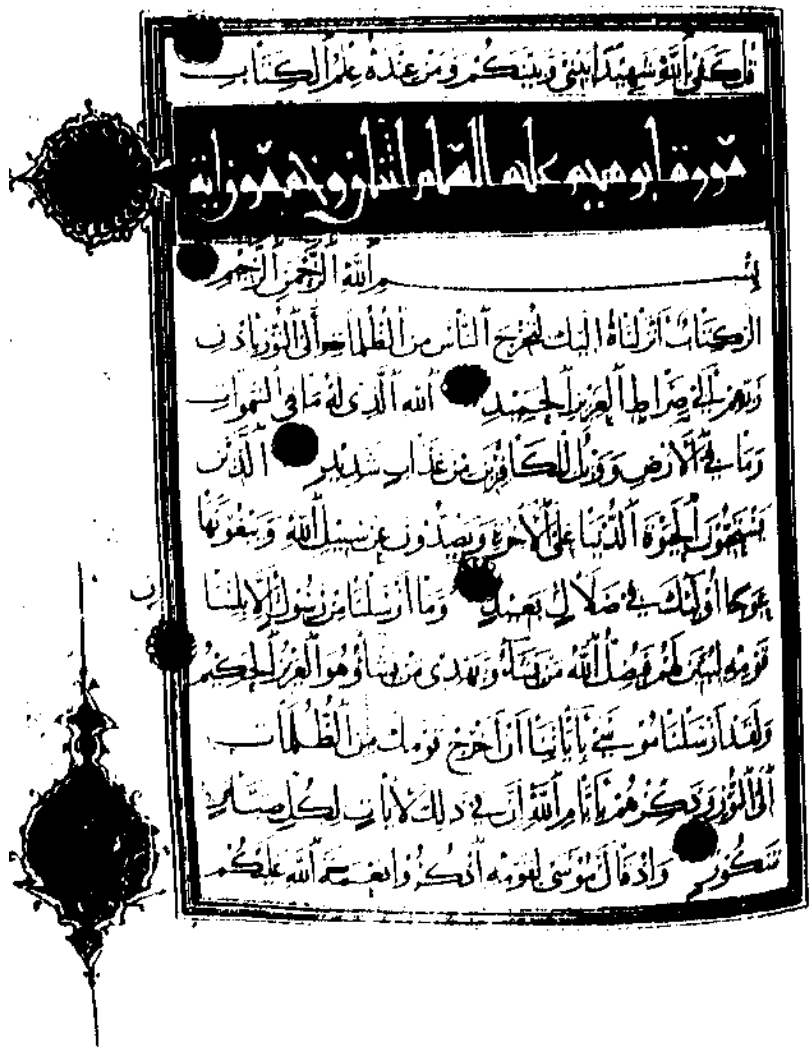 قل كفى بالله شهيدا بيني وبينكم ومن عنده علم الكتاب
سورة ابرهيم عليه السلام اثنان وخمسون اية
بسم الله الرحمن الرحيم
الر كتاب أنزلناه اليك لتخرج الناس من الظلمات إلى النور باذن
ربهم إلى صراط العزيز الحميد الله الذى له ما في السموات
وما في الأرض وويل للكافرين من عذاب شديد الذين
يستحبون الحيوة الدنيا على الآخرة ويصدون عن سبيل الله ويبغونها
عوجا أولئك في ضلال بعيد وما أرسلنا من رسول إلا بلسان
قومه ليبين لهم فيضل الله من يشاء ويهدى من يشاء وهو العزيز الحكيم
ولقد أرسلنا موسى بآياتنا أن أخرج قومك من الظلمات
إلى النور وذكرهم بأيام الله إن في ذلك لآيات لكل صبار
شكور وإذ قال موسى لقومه اذكروا نعمة الله عليكم